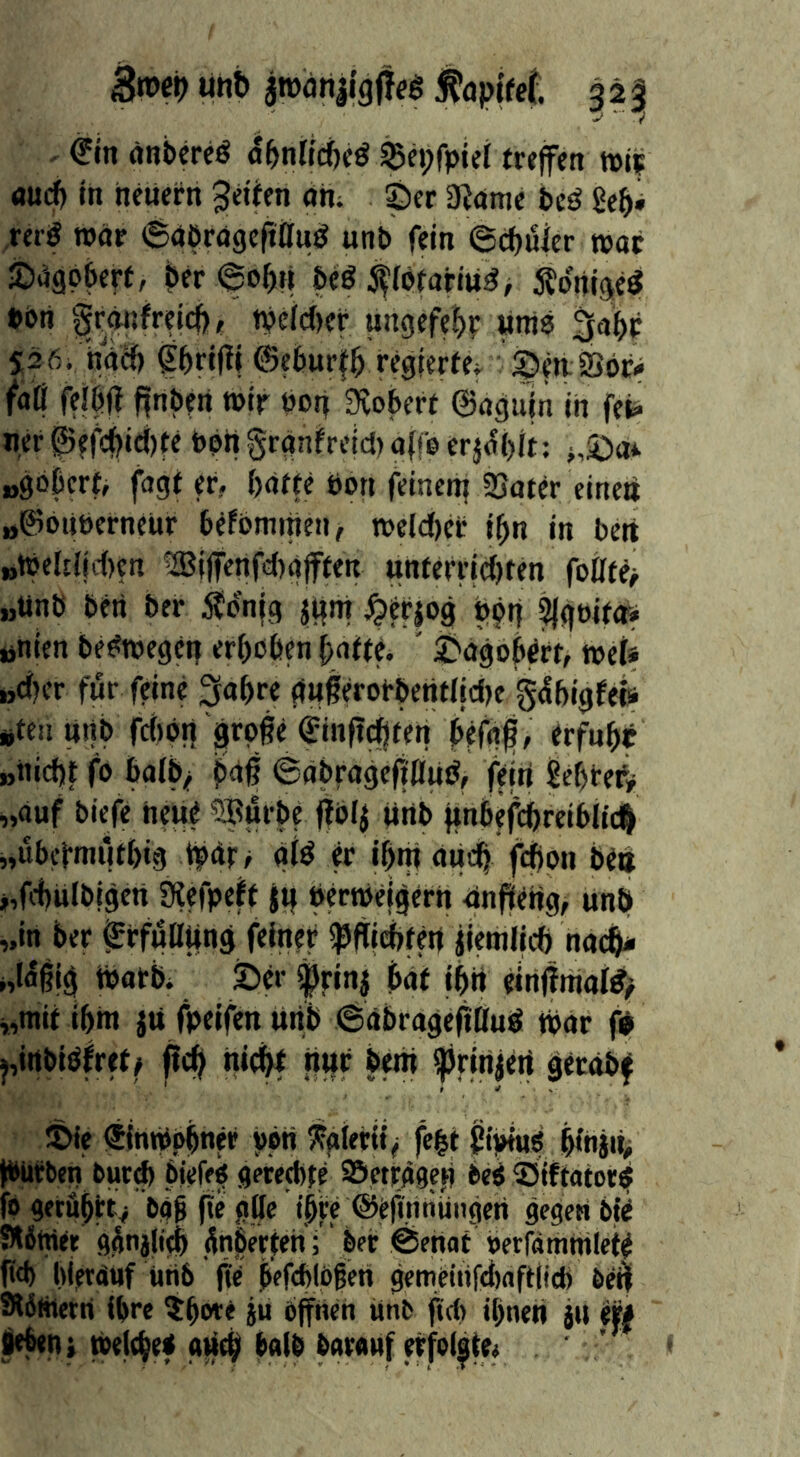 Zwey und zwanzigstes Kapitel. 323
Ein anderes ähnliches Beyspiel treffen wir
auch in neuern Zeiten an. Der Name des Leh-
rers war Sadragesillus und sein Schüler war
Dagobert, der Sohn des Klotarius, Königes
von Frankreich, welcher ungefehr ums Jahr
526. nach Christi Geburth regierte. Den Vor-
fall selbst finden wir von Robert Gaguin in sei-
ner Geschichte von Frankreich also erzählt: „Da-
„gobert, sagt er, hatte von seinem Vater einen
„Gouverneur bekommen, welcher ihn in den
„weltlichen Wissenschafften unterrichten sollte,
„und den der König zum Herzog von Aquita-
„nien deswegen erhoben hatte. Dagobert, wel-
„cher für seine Jahre außerordentliche Fähigkei-
„ten und schon große Einsichten besaß, erfuhr
„nicht so bald, daß Sadragesillus, sein Lehrer,
„auf diese neue Würde stolz und unbeschreiblich
„übermüthig war, als er ihm auch schon den
„schuldigen Respekt zu verweigern anfieng, und
„in der Erfüllung seiner Pflichten ziemlich nach-
„läßig ward. Der Prinz bat ihn einstmals,
„mit ihm zu speisen und Sadragesillus war so
„indiskret, sich nicht nur dem Prinzen gerade
Die Einwohner von Falerii, setzt Livius hinzu,
wurden durch dieses gerechte Betragen des Diktators
so gerührt, daß sie alle ihre Gesinnungen gegen die
Römer gänzlich änderten; der Senat versammlete
sich hierauf und sie beschloßen gemeinschaftlich den
Römern ihre Thore zu öffnen und sich ihnen zu er-
geben; welches auch bald darauf erfolgte.